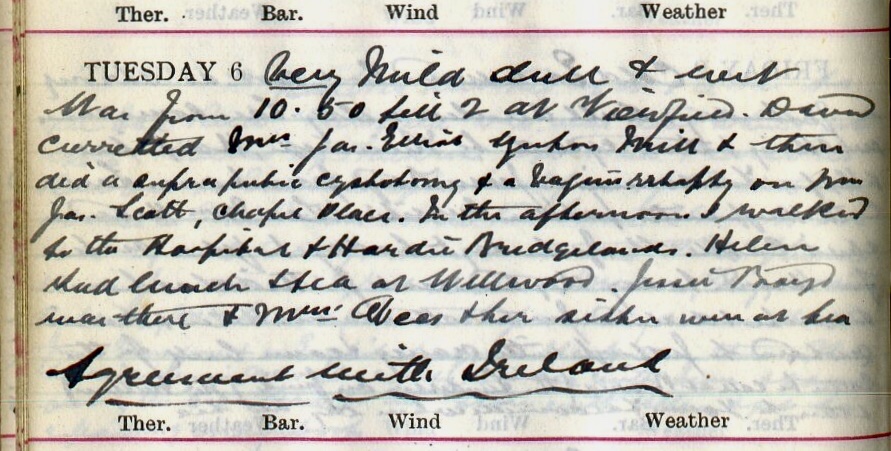 Ther. Bar. Wind Weather
TUESDAY 6 Very Mild dull & wet
Was from 10.50 till 2 at Viewfield. David
curretted Mrs Jas. Elliot Mill & then
did a suprapubic cystotomy & a vaginorrhaphy on Mrs
Jas. Scott, Chapel Place. In the afternoon I walked
to the Hospital & Hardie Bridgelands. Helen
had lunch & tea at Wellwood. Jessie Boyd
was there & Mrs & her sister were at tea
Agreement with Ireland
Ther. Bar. Wind Weather